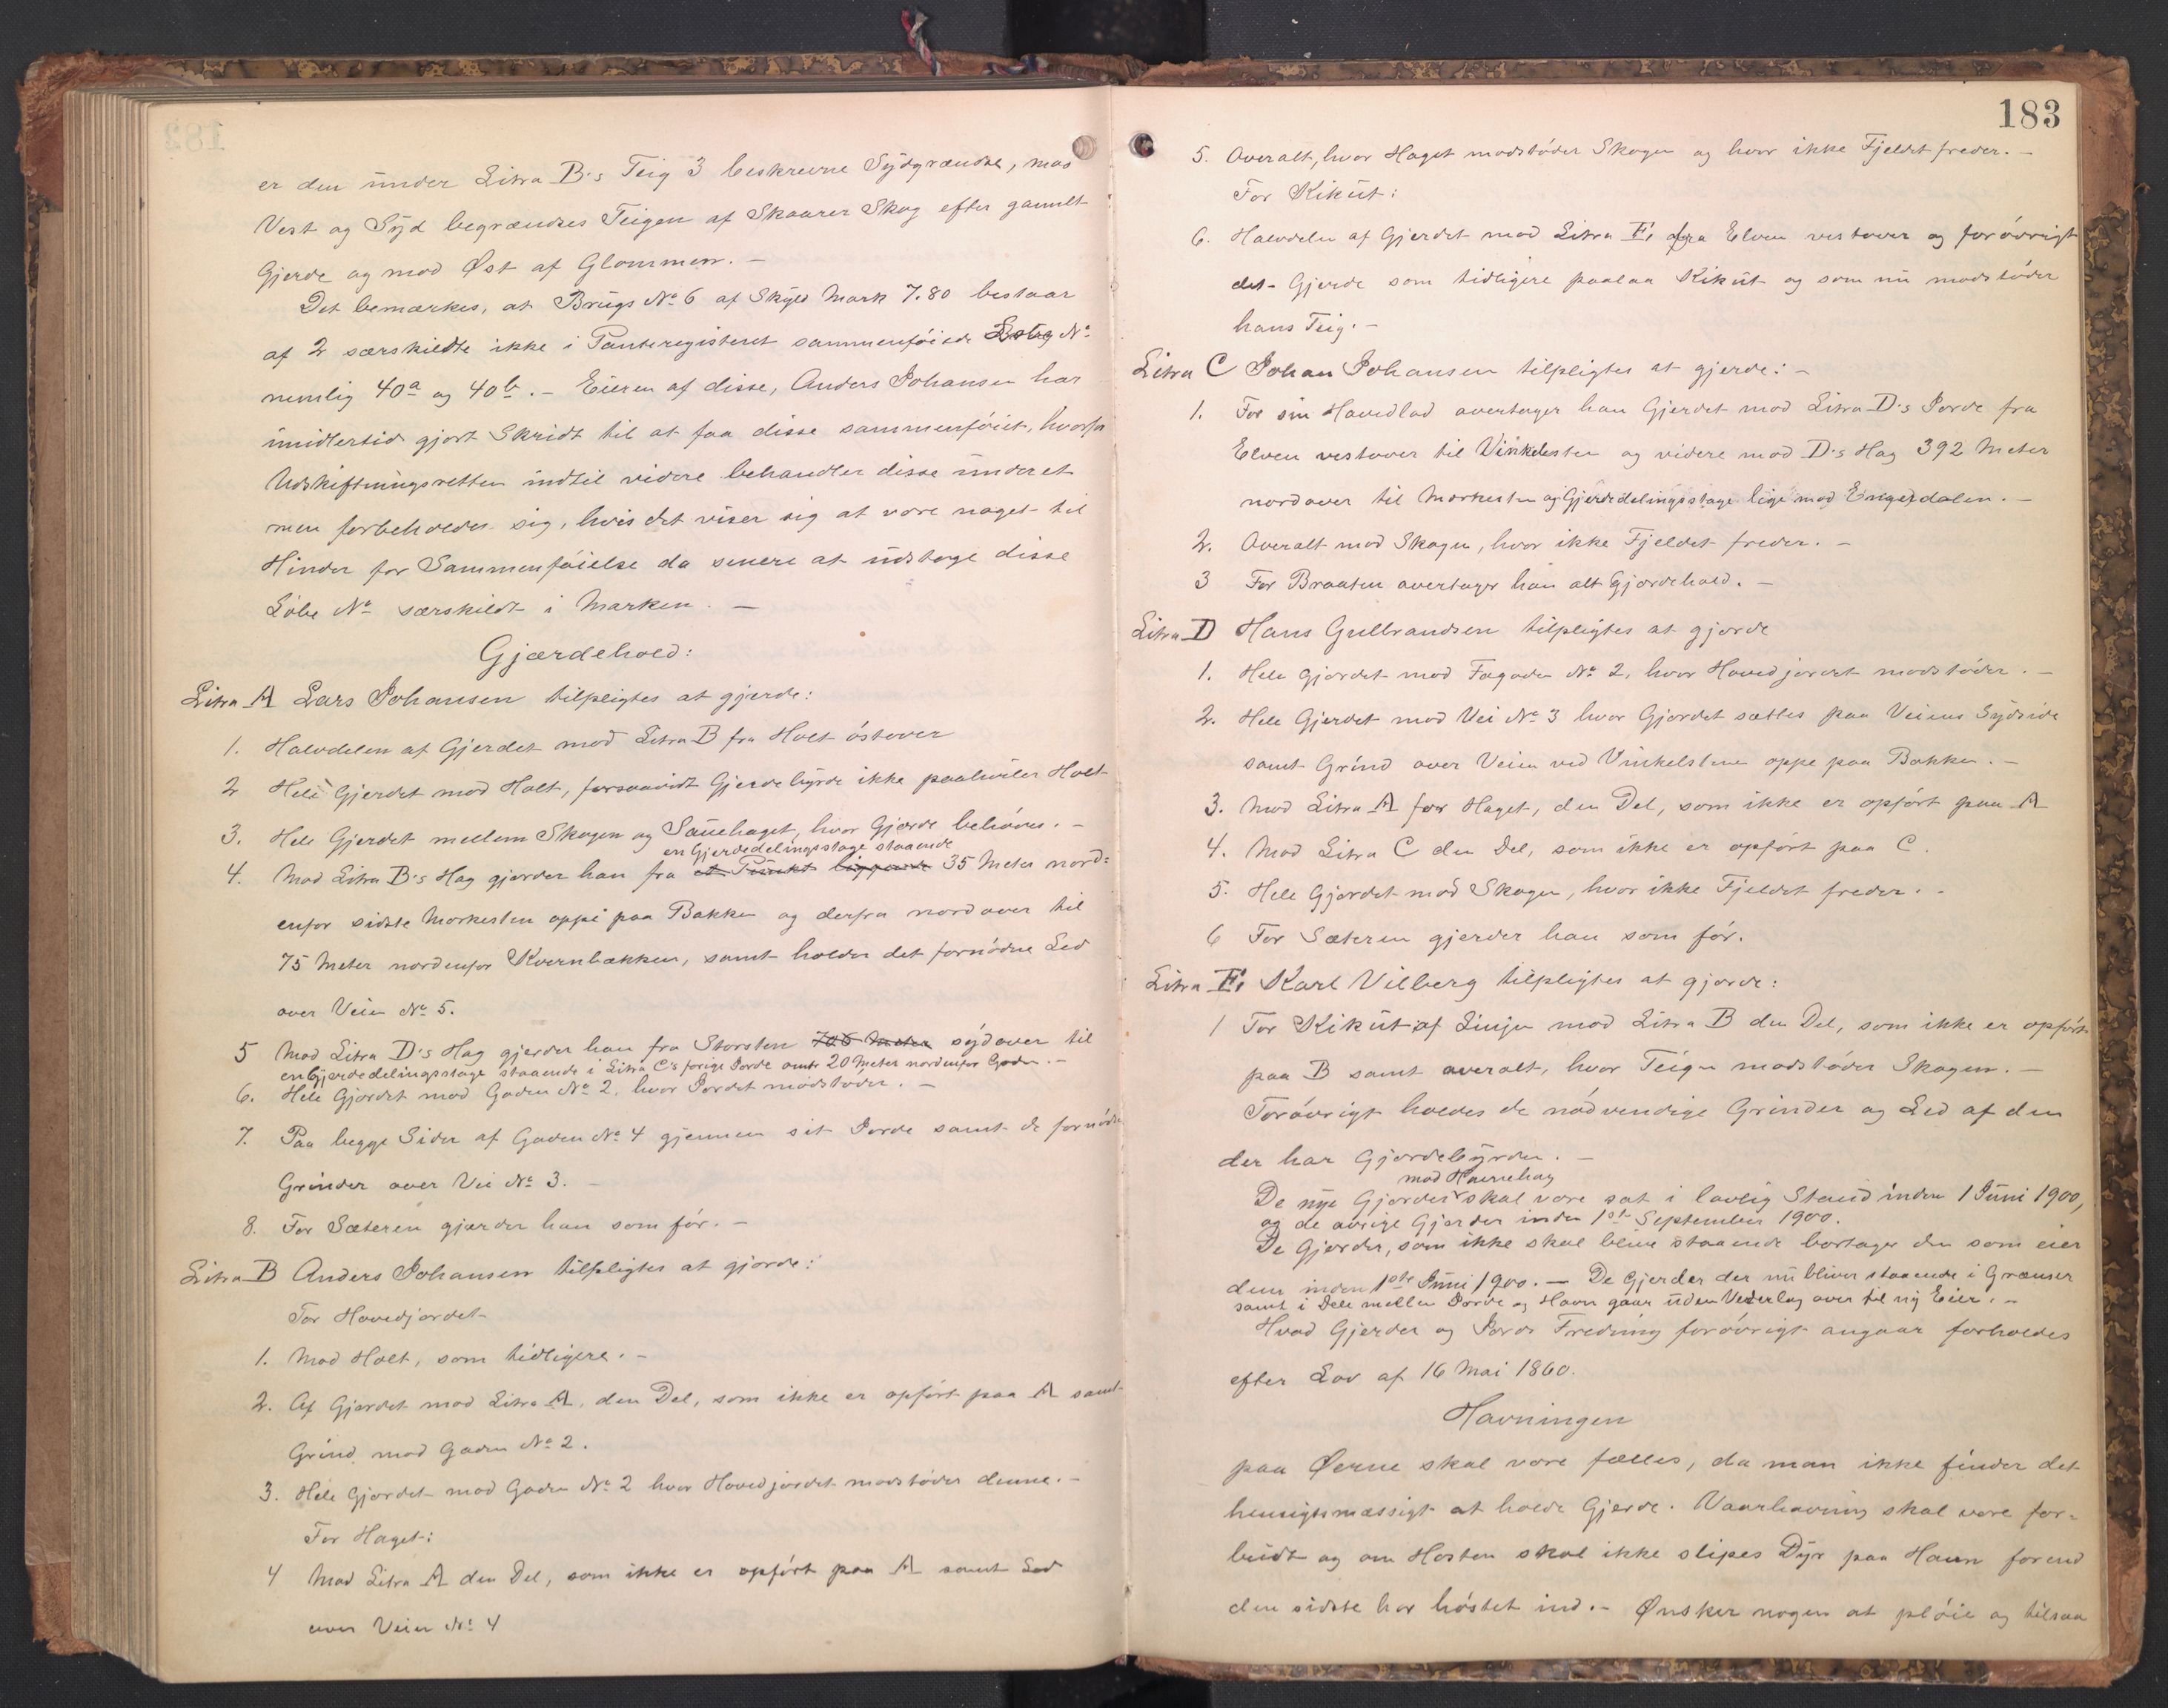 er den under Litra B's Teig 3 beskrevne Sydgrændse, mod
Vest og Syd begrændses Teigen af Skaarer Skog efter gammelt
Gjerde og mod Øst af Glommen. –
Det bemærkes, at Brugs No 6 af Skyld Mark 7.80 bestaar
af 2 særskildte ikke i Panteregisteret sammenføiede No
nemlig 40a og 40b. – Eieren af disse, Anders Johansen har
imidlertid gjort Skridt til at faa disse sammenføiet, hvorfor
Udskiftningsretten indtil videre behandler disse under et
men forbeholder sig, hvis det viser sig at være noget til
Hinder for Sammenføielse da senere at udstage disse
Løbe No særskildt i Marken. –
Gjærdehold:
Litra A Lars Johansen tilpligtes at gjerde:
1. Halvdelen af Gjerdet mod Litra B fra Holt østover
2 Hele Gjerdet mod Holt, forsaavidt Gjerdebyrde ikke paahviler Holt
3. Hele Gjerdet mellem Skogen og Sauehaget, hvor Gjærde behøves. –
en Gjerdedelingsstage staaende
4. Mod Litra B's Hag gjærder han fra et Punkt liggende 35 Meter nord-
enfor sidste Merkesten oppe paa Bakken og derfra nordover til
75 Meter nordenfor Kvernbækken, samt holder det fornødne Led
over Veien No 5.
5 Mod Litra D's Hag gjerder han fra Storsten Meter sydover til
en Gjerdedelingsstage staaende i Litra C's forige Jorde omtr 20 Meter nordenfor Gaden. –
6. Hele Gjærdet mod Gaden No 2, hvor Jordet modstøder. –
7. Paa begge Sider af Gaden No 4 gjennem sit Jorde samt de fornødne
Grinder over Vei No 3. –
8. For Sæteren gjærder han som før. –
Litra B Anders Johansen tilpligtes at gjærde:
For Hovedjordet
1. Mod Holt, som tidligere. –
2. Af Gjærdet mod Litra A, den Del, som ikke er opført paa A samt
Grind mod Gaden No 2.
3. Hele Gjærdet mod Gaden No 2 hvor Hovedjordet modstøder denne. –
For Haget:
4 Mod Litra A den Del, som ikke er opført paa A samt Led
over Veien No 4
183
5. Overalt, hvor Haget modstøder Skogen og hvor ikke Fjeldet freder. –
For Kikut:
6. Halvdelen af Gjerdet mod Litra E, fra Elven vestover og forøvrigt
det Gjerde som tidligere paalaa Kikut og som nu modstøder
hans Teig. –
Litra C Johan Johansen tilpligtes at gjerde: –
1. For sin Hovedlod overtager han Gjerdet mod Litra D's Jorde fra
Elven vestover til Vinkelsten og videre mod D's Hag 392 Meter
nordover til Merkesten og Gjerdedelingsstage lige mod Engerdalen. –
2. Overalt mod Skogen, hvor ikke Fjeldet freder. –
3 For Braaten overtager han alt Gjærdehold. –
Litra D Hans Gulbrandsen tilpligtes at gjærde
1. Hele Gjærdet mod Fægaden No 2, hvor Hovedjordet modstøder. –
2. Hele Gjerdet mod Vei No 3 hvor Gjærdet sættes paa Veiens Sydside
samt Grind over Veien ved Vinkelstenen oppe paa Bakken. –
3. Mod Litra A for Haget, den Del, som ikke er opført paa A
4. Mod Litra C den Del, som ikke er opført paa C.
5. Hele Gjærdet mod Skogen, hvor ikke Fjeldet freder. –
6 For Sæteren gjerder han som før.
Litra E, Karl Vilberg tilpligtes at gjærde:
1 For Kikut af Linjen mod Litra B den Del, som ikke er opført
paa B samt overalt, hvor Teigen modstøder Skogen. –
Forøvrigt holdes de nødvendige Grinder og Led af den
der har Gjærdebyrden. –
mod Havnehag
De nye Gjærder skal være sat i lovlig Stand inden 1 Juni 1900,
og de øvrige Gjerder inden 1ste September 1900.
De Gjerder, som ikke skal blive staaende borttager den som eier
dem inden 1ste Juni 1900. – De Gjerder der nu bliver staaende i Grænser
samt i Dele mellem Jorde og Havn gaar uden Vederlag over til ny Eier. –
Hvad Gjerder og Jords Fredning forøvrigt angaar forholdes
efter Lov af 16 Mai 1860.
Havningen
paa Øerne skal være fælles, da man ikke finder det
hensigtsmæssigt at holde Gjerde. Vaarhavning skal være for-
budt og om Høsten skal ikke slipes Dyr paa Havn førend
den sidste har høstet ind. – Ønsker nogen at pløie og tilsaa